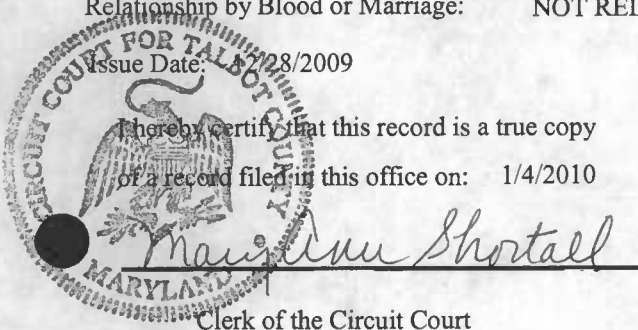 Relationship by Blood or Marriage: NOT REL
Issue Date: 12/28/2009
I hereby certify that this record is a true copy
of a record filed in this office on: 1/4/2010
Mary Ann Shortall
Clerk of the Circuit Court
CIRCUIT COURT FOR TALBOT COUNTY
MARYLAND